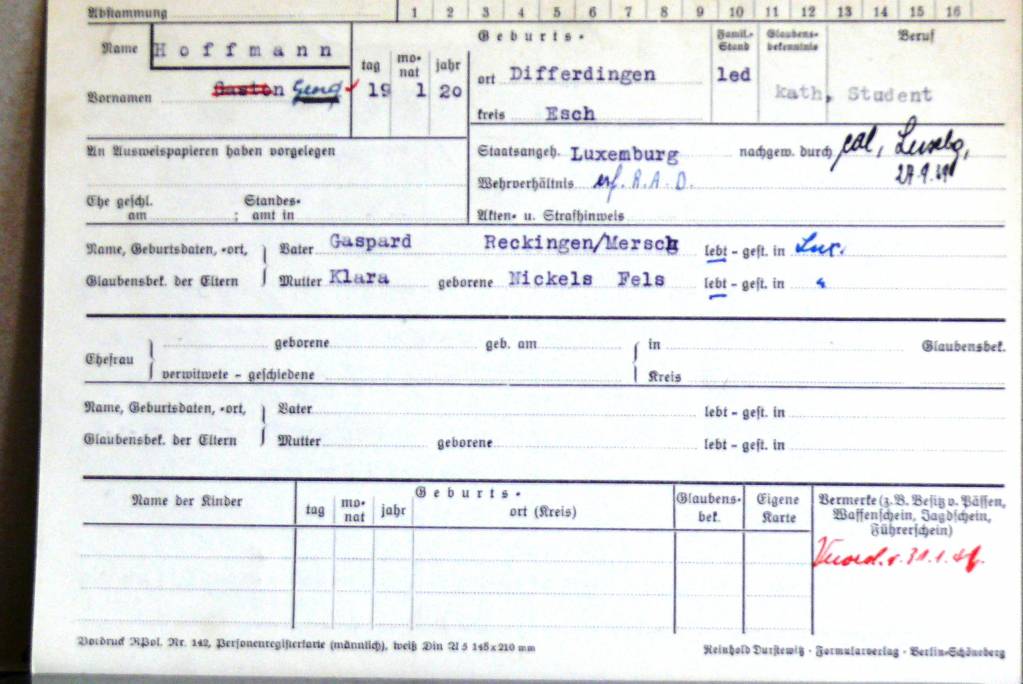 Abstammung 1 2 3 4 5 6 7 8 9 10 11 12 13 14 15 16
Name Hoffmann
Geburts- Famil.- Stand Glaubens- bekenntnis Beruf
tag mo- nat jahr
ort Differdingen led
Vornamen Gaston Georg 19 1 20
kath, Student
kreis Esch
An Ausweispapieren haben vorgelegen
Staatsangeh. Luxemburg nachgew. durch Luxbg,
27.9.
Wehrverhältnis erf. R.A.D.
Ehe geschl. Standes-
am ; amt in
Akten- u. Strafhinweis
Name, Geburtsdaten, -ort, Vater Gaspard Reckingen/Mersch lebt - gest. in Lux.
Glaubensbek. der Eltern Mutter Klara geborene Nickels Fels lebt - gest. in "
Ehefrau
geborene geb. am in Glaubensbek.
verwitwete - geschiedene Kreis
Name, Geburtsdaten, -ort, Vater lebt - gest. in
Glaubensbek. der Eltern Mutter geborene lebt - gest. in
Name der Kinder
Geburts-
tag mo- nat jahr ort (Kreis)
Glaubens-
bek.
Eigene
Karte
Vermerke (z. B. Besitz v. Pässen,
Waffenschein, Jagdschein,
Führerschein)
v. 31.1.
Vordruck RPol. Nr. 142, Personenregisterkarte (männlich), weiß Din A 5 148 x 210 mm
Reinhold Durstewitz · Formularverlag · Berlin-Schöneberg